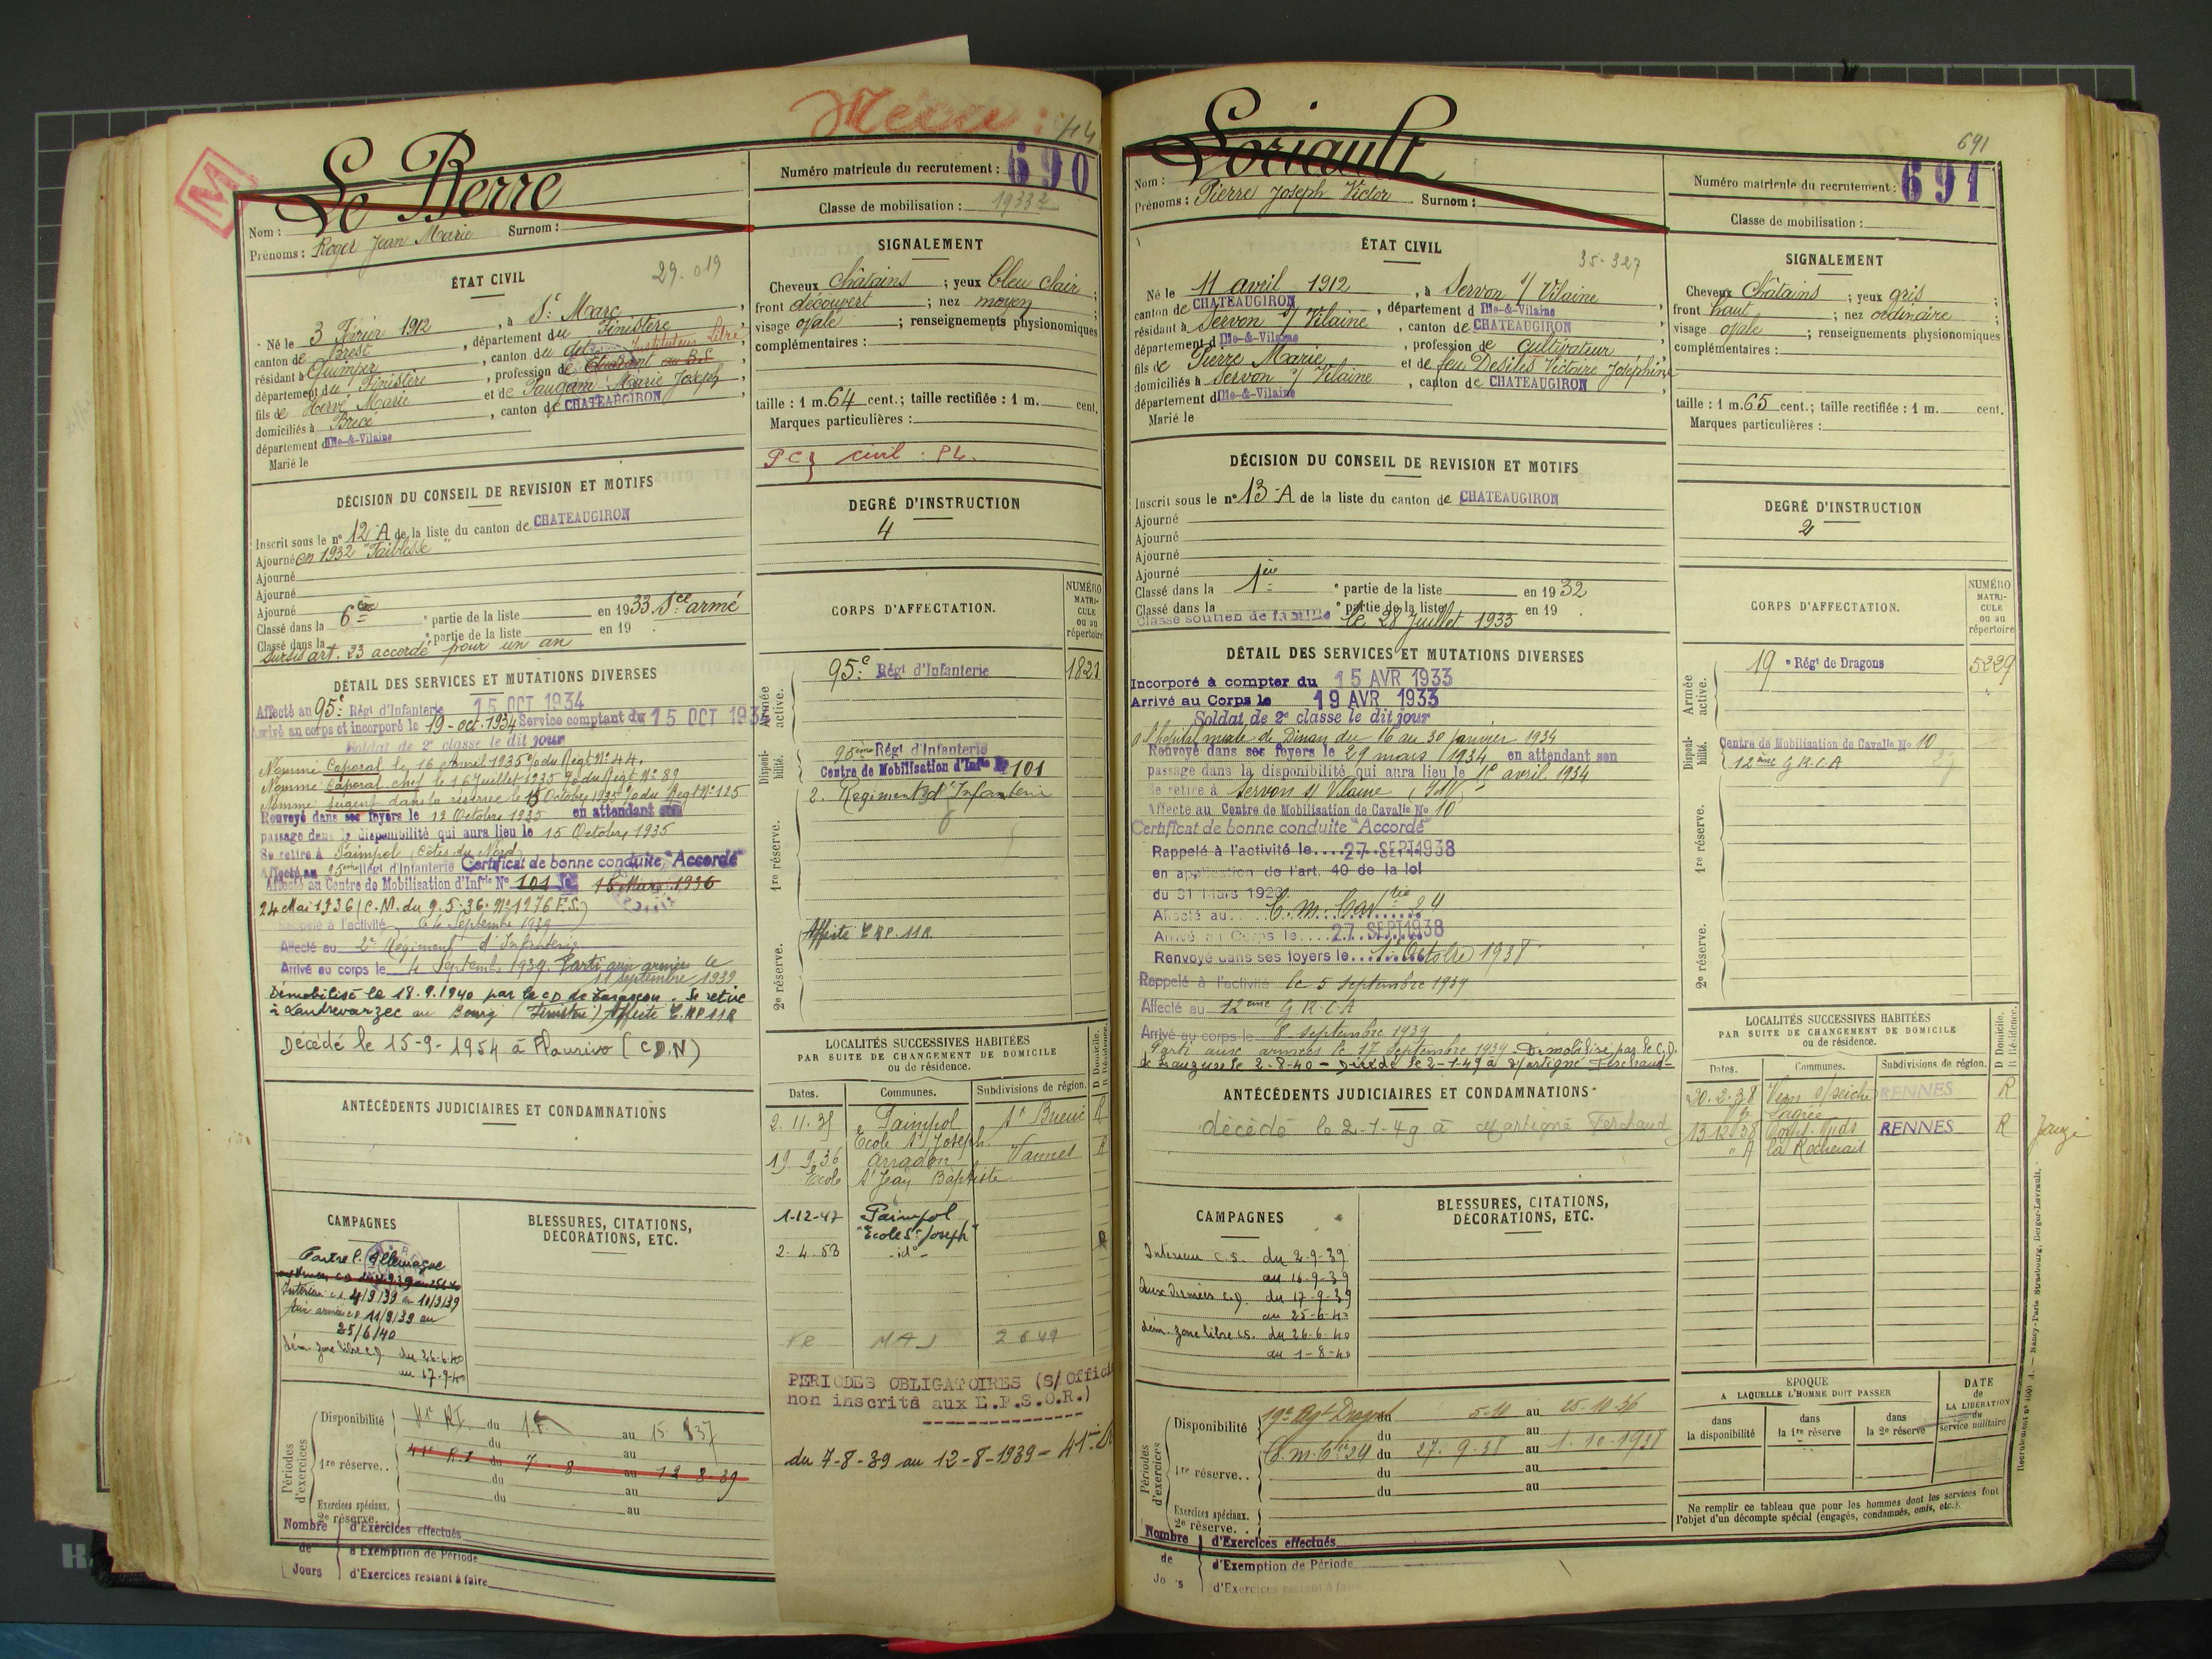 M
Le Berre
Nom :
Prénoms : Roger Jean Marie Surnom :
Numéro matricule du recrutement : 690
Classe de mobilisation : 1933 2
ÉTAT CIVIL
29.019
Né le 3 Février 1912, à St Marc,
canton de Brest, département du Finistère,
résidant à Quimper, canton du dit Instituteur Libre,
département du Finistère, profession de Etudiant au B.S.
fils de Hervé Marie et de Paugam Marie Joseph,
domiciliés à Brécé, canton de CHATEAUGIRON,
département d'Ille-&-Vilaine
Marié le
DÉCISION DU CONSEIL DE REVISION ET MOTIFS
Inscrit sous le n° 12 A de la liste du canton de CHATEAUGIRON
Ajourné en 1932 "Faiblesse"
Ajourné
Ajourné
Ajourné
Classé dans la 6e partie de la liste en 1933 Sce armé
Classé dans la e partie de la liste en 19
Sursis art. 23 accordé pour un an
DÉTAIL DES SERVICES ET MUTATIONS DIVERSES
Affecté au 95e Régt d'Infanterie 15 OCT 1934
Arrivé au corps et incorporé le 19-oct.1934 Service comptant du 15 OCT 1934
Soldat de 2e classe le dit jour
Nommé Caporal le 16 avril 1935 % du Régt N° 44.
Nommé Caporal chef le 16 Juillet 1935 % du Régt N° 89
Nommé Sergent dans la réserve le 15 Octobre 1935 % du Regt N° 125
Renvoyé dans ses foyers le 12 Octobre 1935 en attendant son
passage dans la disponibilité qui aura lieu le 15 Octobre 1935
Se retire à Paimpol (Côtes du Nord)
Affecté au 95ème Régt d'Infanterie Certificat de bonne conduite "Accordé"
Affecté au Centre de Mobilisation d'Infrie N° 101 le 15 Mars 1936
24 Mai 1936 (C.M. du 9.5.36. N° 1976 E.S.)
Rappelé à l'activité le 4 Septembre 1939
Affecté au 2e Régiment d'Infanterie
Arrivé au corps le 4 Septemb. 1939. Parti aux armées le
11 septembre 1939
Démobilisé le 18.9.1940 par le CD de Tarascon. Se retire
à Landrevarzec au Bourg (Finistère) Affecté C.RP 11R
Décédé le 15-9-1954 à Plourivo (CDN)
ANTÉCÉDENTS JUDICIAIRES ET CONDAMNATIONS
CAMPAGNES
Contre l'Allemagne
Intérieur cs 4/9/39 au 10/9/39
Aux armées cD 11/9/39 au
25/6/40
dém. zone libre cD du 26-6-40
au 17-9-40
BLESSURES, CITATIONS,
DÉCORATIONS, ETC.
Périodes d'exercices
Disponibilité du au 15. 37
1re réserve.. 41e R.I du 7 . 8 au 12 8 39
du au
Exercices spéciaux. du au
2e réserve.
Nombre de Jours
d'Exercices effectués
d'Exemption de Période
d'Exercices restant à faire
SIGNALEMENT
Cheveux châtains ; yeux bleu clair ;
front découvert ; nez moyen ;
visage ovale ; renseignements physionomiques
complémentaires :
taille : 1 m. 64 cent.; taille rectifiée : 1 m. cent.
Marques particulières :
civil : PL.
DEGRÉ D'INSTRUCTION
4
CORPS D'AFFECTATION.
NUMÉRO MATRICULE ou au répertoire
Armée active.
95e Régt d'Infanterie 1821
Disponibilité.
95ème Régt d'Infanterie
Centre de Mobilisation d'Infie N° 101
2e Régiment d'Infanterie
1re réserve.
2e réserve.
Affecté C.RP.11R
LOCALITÉS SUCCESSIVES HABITÉES
PAR SUITE DE CHANGEMENT DE DOMICILE
ou de résidence.
D Domicile. R Résidence.
Dates. Communes. Subdivisions de région.
2.11.35 Paimpol St Brieuc R
Ecole St Joseph
19.9.36 Arradon Vannes R
Ecole St Jean Baptiste
1-12-47 Paimpol
"Ecole St Joseph"
2-4.53 -id°- R
VR MAJ 2 6 49
PERIODES OBLIGATOIRES (S/Offici
non inscrits aux E.P.S.O.R.)
du 7-8-39 au 12-8-1939 = 41e
691
Loriault
Nom :
Prénoms : Pierre Joseph Victor Surnom :
Numéro matricule du recrutement : 691
Classe de mobilisation :
ÉTAT CIVIL
35-327
Né le 11 avril 1912, à Servon s/ Vilaine,
canton de CHATEAUGIRON, département d'Ille-&-Vilaine
résidant à Servon s/ Vilaine, canton de CHATEAUGIRON
département d'Ille-&-Vilaine, profession de cultivateur
fils de Pierre Marie et de feu Desilles Victoire Joséphine
domiciliés à Servon s/ Vilaine, canton de CHATEAUGIRON
département d'Ille-&-Vilaine
Marié le
DÉCISION DU CONSEIL DE REVISION ET MOTIFS
Inscrit sous le n° 13-A de la liste du canton de CHATEAUGIRON
Ajourné
Ajourné
Ajourné
Ajourné
Classé dans la 1ère e partie de la liste en 1932
Classé dans la e partie de la liste en 19
Classé soutien de famille le 28 Juillet 1933
DÉTAIL DES SERVICES ET MUTATIONS DIVERSES
Incorporé à compter du 15 AVR 1933
Arrivé au Corps le 19 AVR 1933
Soldat de 2e classe le dit jour
à l'hopital mixte de Dinan du 16 au 30 janvier 1934
Renvoyé dans ses foyers le 29 mars 1934 en attendant son
passage dans la disponibilité qui aura lieu le 15 avril 1934
Se retire à Servon s/ Vilaine (I&V)
Affecté au Centre de Mobilisation de Cavalie No 10
Certificat de bonne conduite "Accordé"
Rappelé à l'activité le 27 SEPT 1938
en application de l'art. 40 de la loi
du 31 Mars 1928
Affecté au C.m. Cavlie 24
Arrivé au Corps le 27 SEPT 1938
Renvoyé dans ses foyers le 1 Octobre 1938
Rappelé à l'activité le 5 septembre 1939
Affecté au 12ème G.R.C.A
Arrivé au corps le 8 septembre 1939
Parti aux armées le 17 septembre 1939 - Démobilisé par le C.D.
de Lauzun le 2-8-40 - Décédé le 2-1-49 à Martigné Ferchaud -
ANTÉCÉDENTS JUDICIAIRES ET CONDAMNATIONS
décédé le 2-1-49 à Martigné Ferchaud
CAMPAGNES
Intérieur C.S. du 2-9-39
au 16-9-39
Aux Armées C.D. du 17-9-39
au 25-6-40
dém. zone libre CS. du 26-6-40
au 1-8-40
BLESSURES, CITATIONS,
DÉCORATIONS, ETC.
Périodes d'exercices
Disponibilité 19e Rgt Dragons du 5-10 au 25-10-36
du au
1re réserve.. C.m.Cie 24 du 27.9.38 au 1.10.1938
du au
du au
Exercices spéciaux.
2e réserve. .
Nombre de Jours
d'Exercices effectués
d'Exemption de Période
d'Exercices restant à faire
SIGNALEMENT
Cheveux Châtains ; yeux gris ;
front haut ; nez ordinaire ;
visage ovale ; renseignements physionomiques
complémentaires :
taille : 1 m. 65 cent.; taille rectifiée : 1 m. cent.
Marques particulières :
DEGRÉ D'INSTRUCTION
2
CORPS D'AFFECTATION.
NUMÉRO MATRICULE ou au répertoire
Armée active.
19e Régt de Dragons 5229
Disponibilité.
Centre de Mobilisation de Cavalie No 10
12ème G.R.C.A
1re réserve.
2e réserve.
LOCALITÉS SUCCESSIVES HABITÉES
PAR SUITE DE CHANGEMENT DE DOMICILE
ou de résidence.
D Domicile. R Résidence.
Dates. Communes. Subdivisions de région.
20.2.38 Vern s/seiche RENNES R
13 12 38 RENNES R
La Rocherais
EPOQUE
A LAQUELLE L'HOMME DOIT PASSER
dans la disponibilité
dans la 1re réserve
dans la 2e réserve
DATE de LA LIBÉRATION du service militaire
Ne remplir ce tableau que pour les hommes dont les services font
l'objet d'un décompte spécial (engagés, condamnés, omis, etc.).
Nancy-Paris Strasbourg, Berger-Levrault.